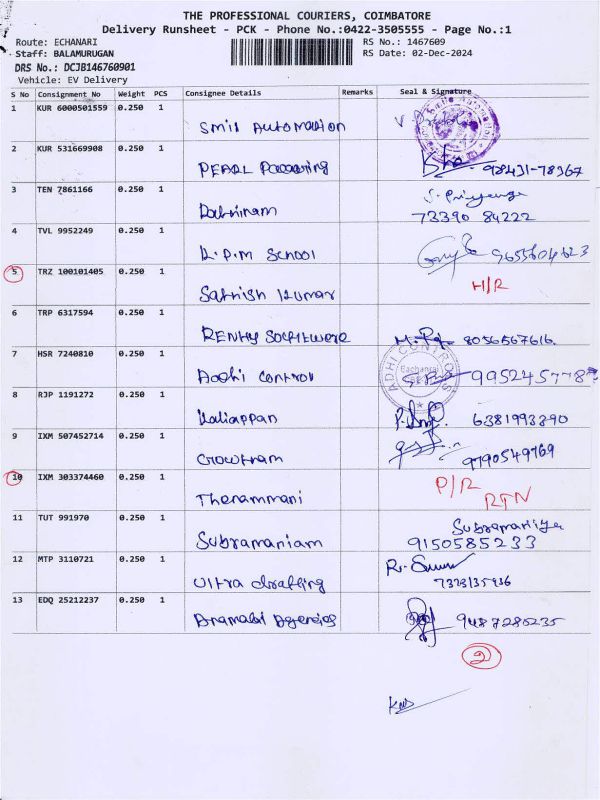 THE PROFESSIONAL COURIERS, COIMBATORE
Delivery Runsheet - PCK - Phone No.:0422-3505555 - Page No.:1
Route: ECHANARI RS No.: 1467609
Staff: BALAMURUGAN RS Date: 02-Dec-2024
DRS No.: DCJB146760901
Vehicle: EV Delivery
S No Consignment No Weight PCS Consignee Details Remarks Seal & Signature
1 KUR 6000501559 0.250 1
Smil Automation
2 KUR 531669908 0.250 1
PEARL 98431-78367
3 TEN 7861166 0.250 1
73390 84222
4 TVL 9952249 0.250 1
K.P.M School 9655604623
5 TRZ 100101405 0.250 1 H/R
Sathish Kumar
6 TRP 6317594 0.250 1
8056567616.
7 HSR 7240810 0.250 1
ADHI CONTROLS
Aadhi control
8 RJP 1191272 0.250 1
Kaliappan 6381993890
9 IXM 507452714 0.250 1
Crowtram 9790549769
10 IXM 303374460 0.250 1 P/R
Thenammani RTN
11 TUT 991970 0.250 1
Subramaniam 9150585233
12 MTP 3110721 0.250 1
Ultra drafting
13 EDQ 25212237 0.250 1
Agencies 9487286235
2